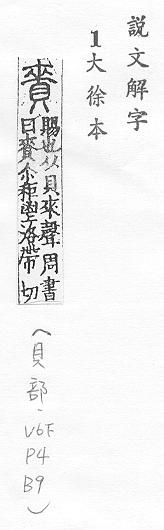 説文解字
1大徐本
賚 賜也从貝來聲周書
曰賚尒秬鬯洛帶切
(貝部.V6F
P4
B9)